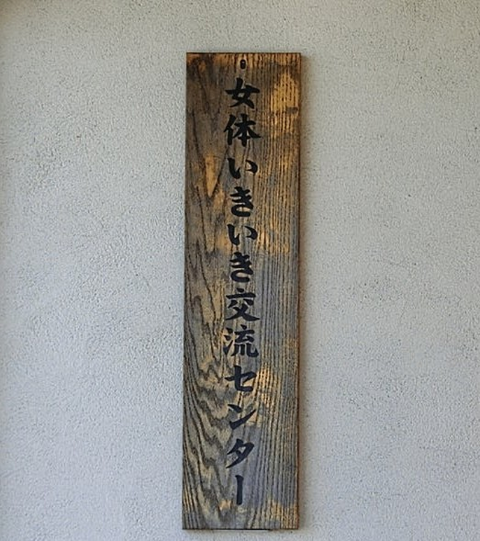 女体いきいき交流センター